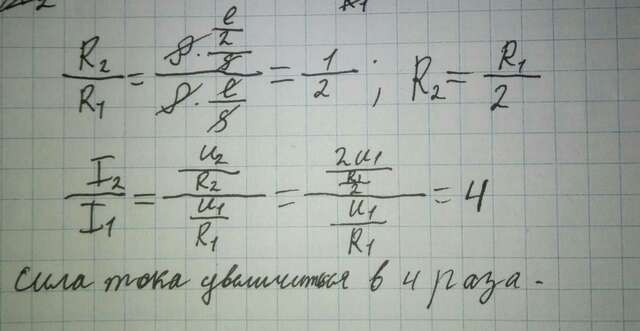 R₂/R₁ = (ρ · (l/2)/s)/(ρ · l/s) = 1/2 ; R₂ = R₁/2
I₂/I₁ = (U₂/R₂)/(U₁/R₁) = (2U₁/(R₁/2))/(U₁/R₁) = 4
Сила тока увеличиться в 4 раза.